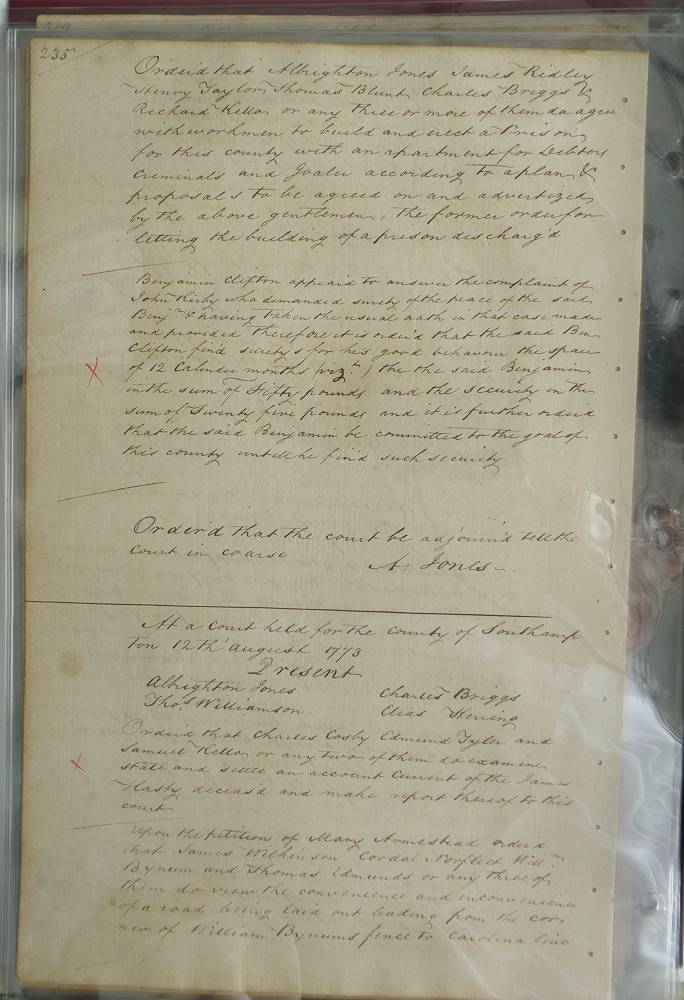 235
Orderd that Albrighton Jones James Ridley
Henry Taylor Thomas Blunt Charles Briggs &
Richard Kello or any three or more of them do agree
with workmen to build and erect a Prison
for this county with an apartment for Debtors
Criminals and Joaler according to a plan &
proposals to be agreed on and advertized
by the above gentlemen, the former order for
letting the building of a prison discharg'd
Benjamin Clifton appeaid to answer the complaint of
John Kirby who demanded surety of the peace of the said
Benjn & having taken the usual oath in that case made
and provided therefore it is order'd that the said Ben
Clifton find suretys for his good behavour the space
of 12 Calender months (vizt) the the said Benjamin
in the sum of Fifty pounds and the security in the
sum of Twenty five pounds and it is further orderd
that the said Benjamin be committed to the goal of
this county untell he find such security
Order'd that the court be adjourn'd tell the
court in coarse
A. Jones
At a Court held for the county of Southamp
ton 12th august 1773
Present
Albrighton Jones Charles Briggs
Thos Williamson Elias Herring
Orderd that Charles Cosby Edmund Tyler and
Samuel Kello or any two of them do examine
state and settle an account Current of the James
Hasty deceasd and make report thereof to this
court
Upon the petition of Mary Armestead orderd
that James Wilkinson Cordal Norfleet Willm
Bynum and Thomas Edmunds or any three of
them do view the convenience and inconvenience
of a road being laid out leading from the cor-
ner of William Bynums fence to Carolina line